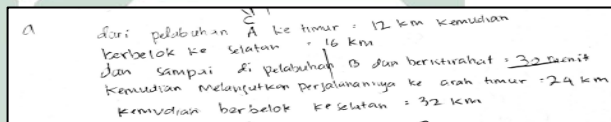 a dari pelabuhan A ke timur = 12 km kemudian
berbelok ke selatan = 16 km
dan sampai di pelabuhan B dan beristirahat = 30 menit
kemudian melanjutkan perjalanannya ke arah timur = 24 km
kemudian berbelok ke selatan = 32 km